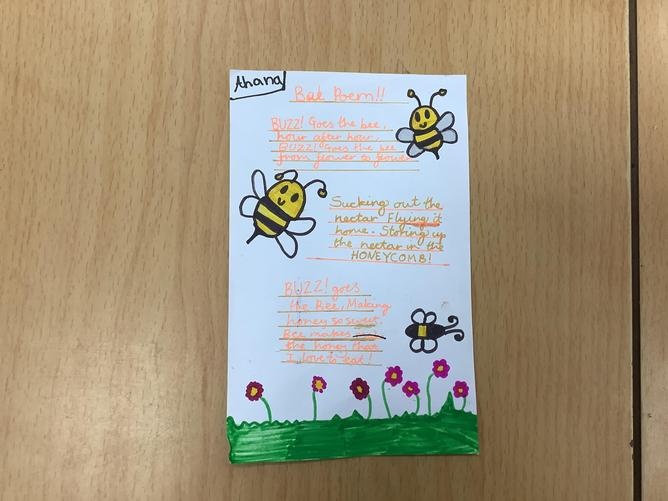 Ahana
Bee Poem!!
BUZZ! Goes the bee,
hour after hour,
BUZZ! Goes the bee
from flower to flower
Sucking out the
nectar Flying it
home. Storing up
the nectar in the
HONEYCOMB!
BUZZ! goes
the Bee, Making
honey so sweet
Bee makes
the honey that
I love to eat!